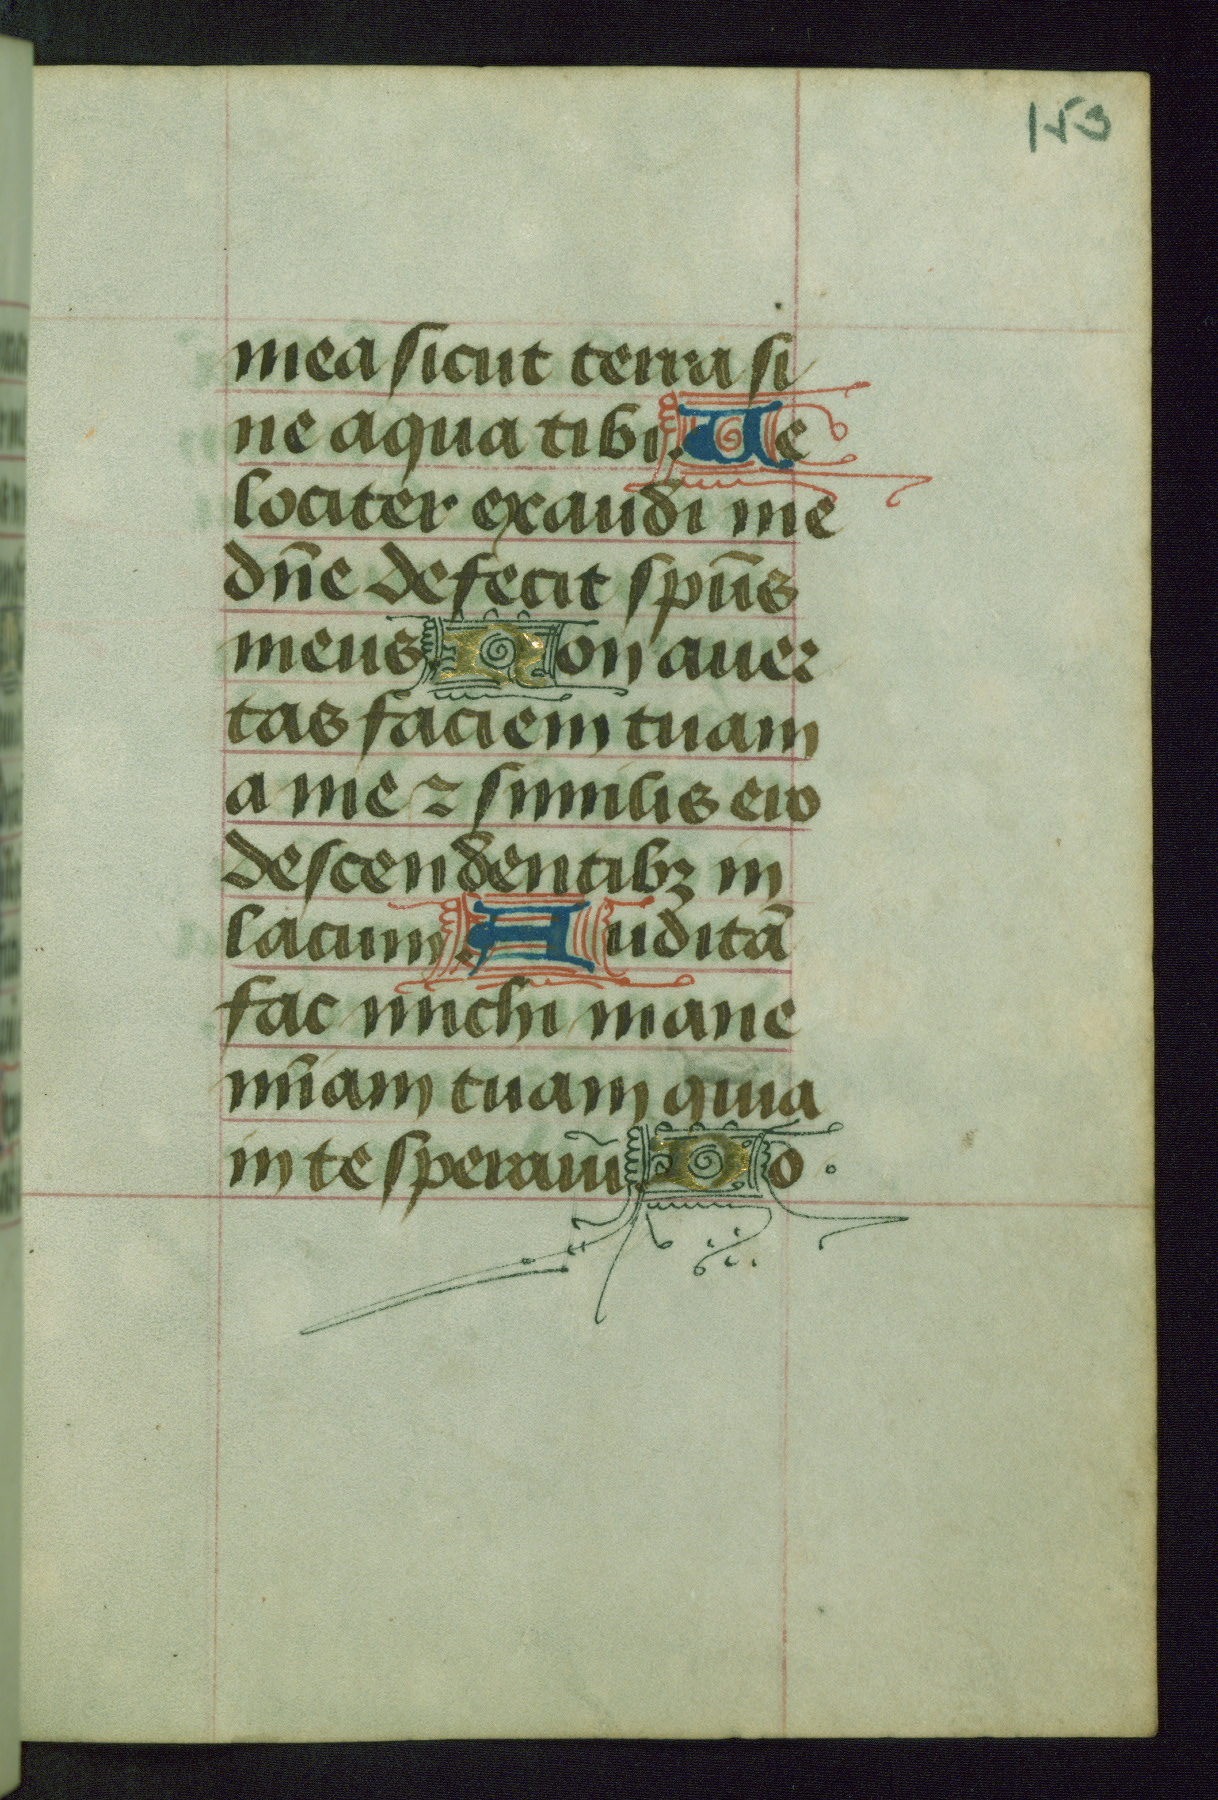 153
mea sicut terra si
ne aqua tibi. Ve
lociter exaudi me
dn̄e defecit spūs
meus. Non auer
tas faciem tuam
a me ⁊ similis ero
descendentibꝫ in
lacum. Auditā
fac michi mane
mīam tuam quia
in te speraui. No